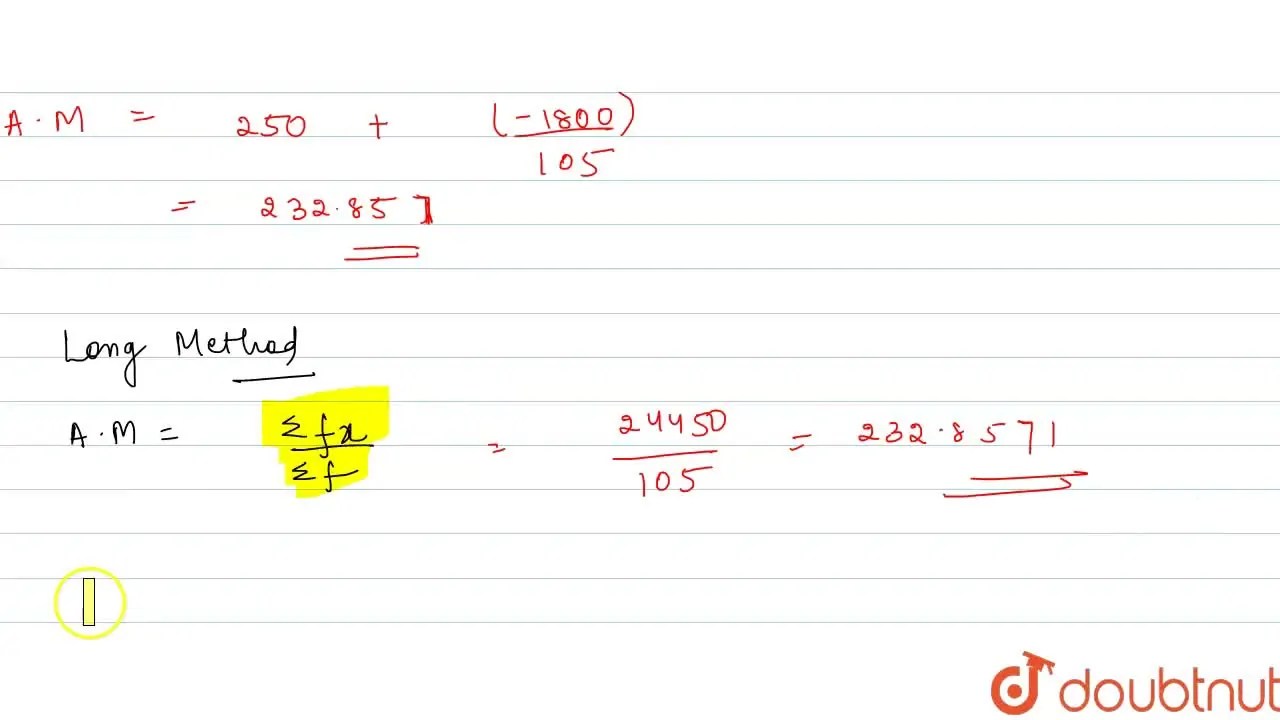 A.M = 250 + (-1800)/105
= 232.857
Long Method
A.M = Σfx/Σf = 24450/105 = 232.8571
doubtnut